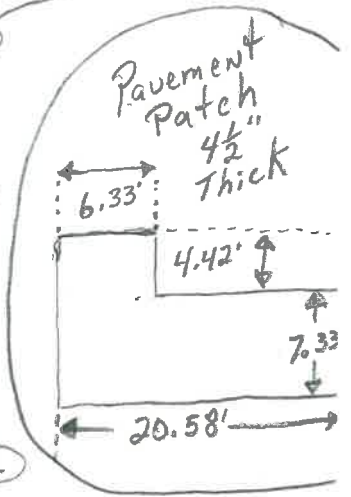 Pavement
Patch
4½"
Thick
6.33'
4.42'
7.33
20.58'